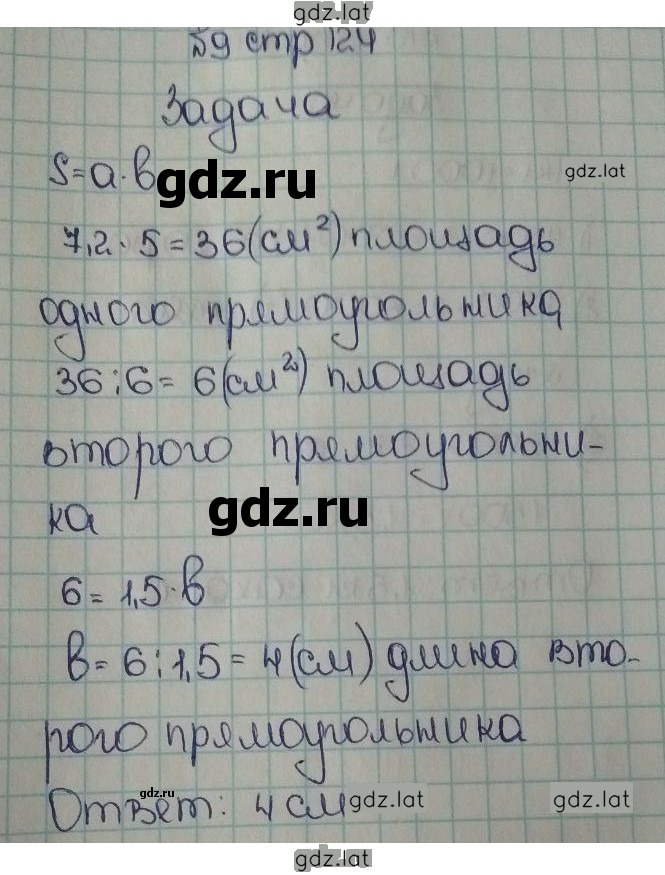 gdz.lat
№9 стр 124
Задача
S=a·в
gdz.lat
gdz.lat
7,2·5=36(см²) площадь
одного прямоугольника
36:6=6(см²) площадь
второго прямоугольни-
ка
gdz.lat
6=1,5·в
в=6:1,5=4(см) длина вто-
рого прямоугольника
gdz.lat
Ответ: 4 см
gdz.lat
gdz.lat
gdz.lat